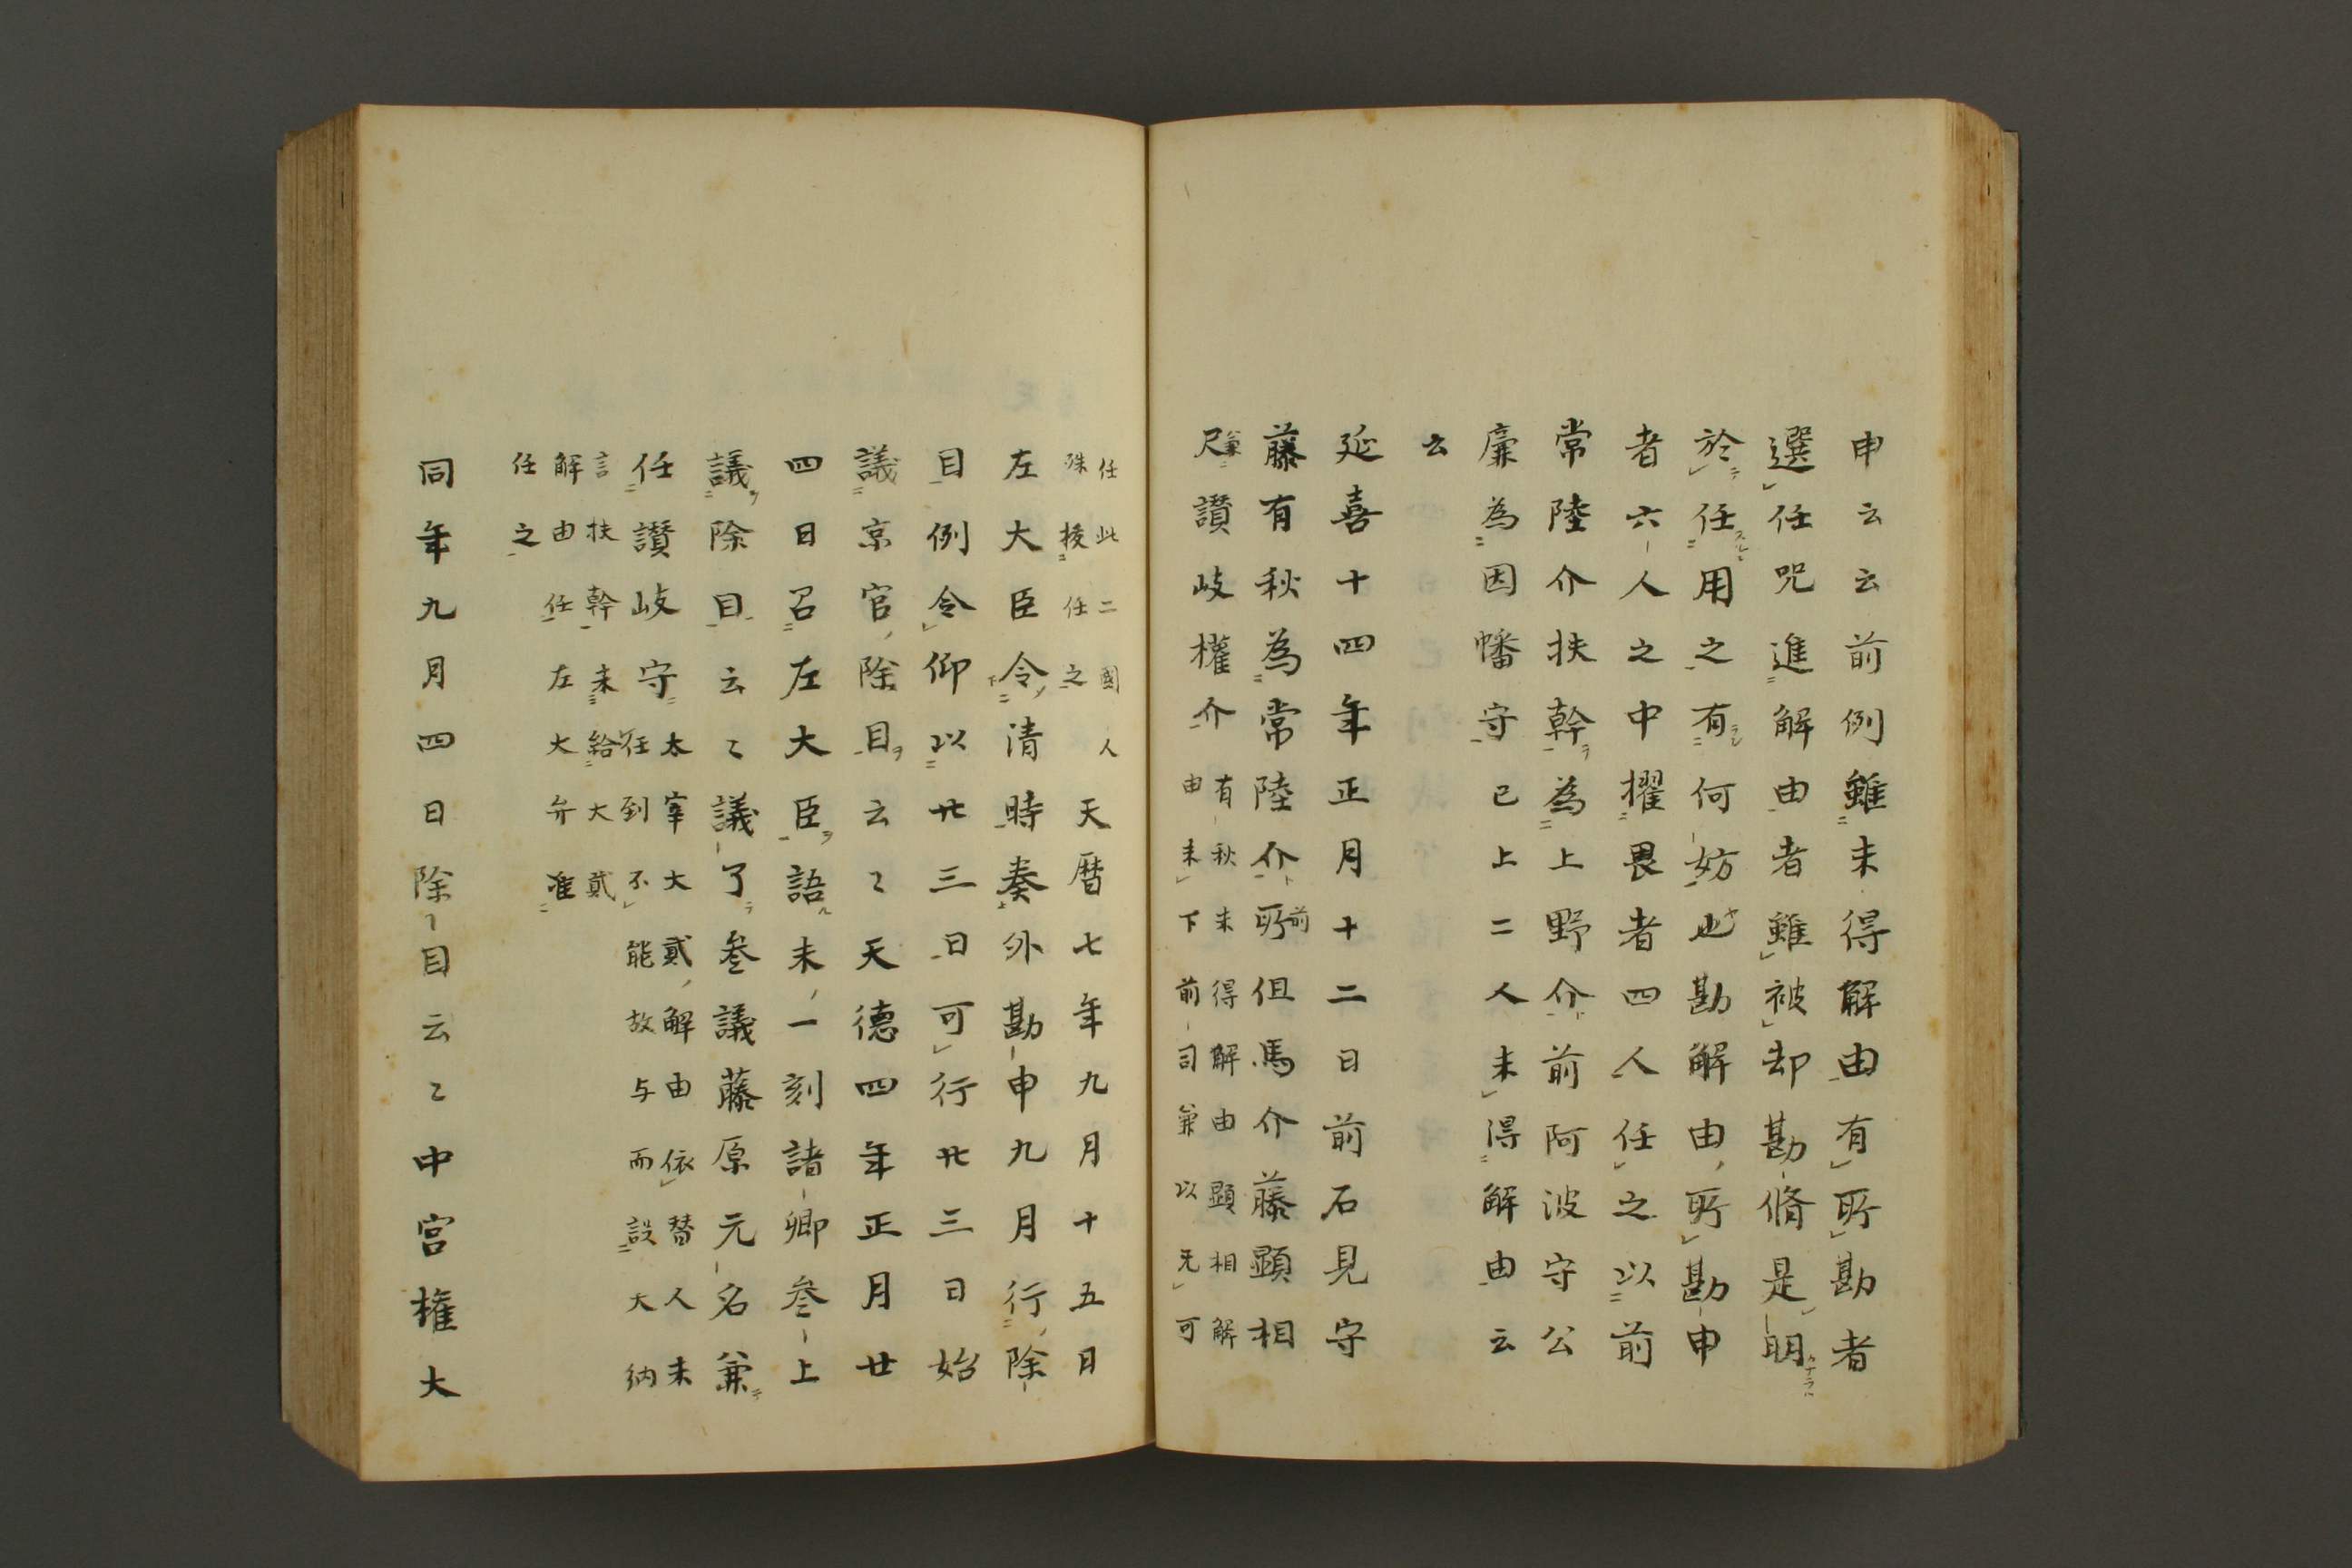 申云云前例雖未得解由有所勘者
選任咒進解由者雖被却勘脩是明
於任用之有何妨也勘解由所勘申
者六人之中擢畏者四人任之以前
常陸介扶幹為上野介前阿波守公
廉為因幡守已上二人未得解由云
云
延喜十四年正月十二日前石見守
藤有秋為常陸介前所但馬介藤顕相
兼尺讃岐權介
有秋未得解由顕相解
由未下前司兼以无可
任此二國人
殊授任之
天暦七年九月十五日
左大臣令清時奏外勘申九月行除
目例令仰以廿三日可行廿三日始
議京官除目云々天徳四年正月廿
四日召左大臣語未一刻諸卿叄上
議除目云々議了叄議藤原元名兼
任讃岐守
太宰大貳解由依替人未
任到不能放与而設大納
言扶幹未給大貳
解由任左大弁准
任之
同年九月四日除目云々中宮権大